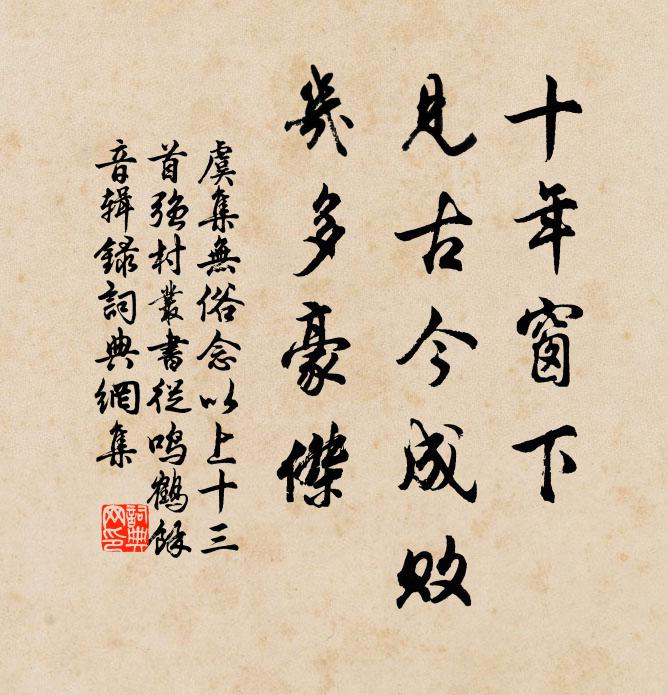 十年窗下
見古今成敗
幾多豪傑
虞集無俗念以上十三
首彊村叢書從鳴鶴餘
音辑錄詞典網集
詞典
网印